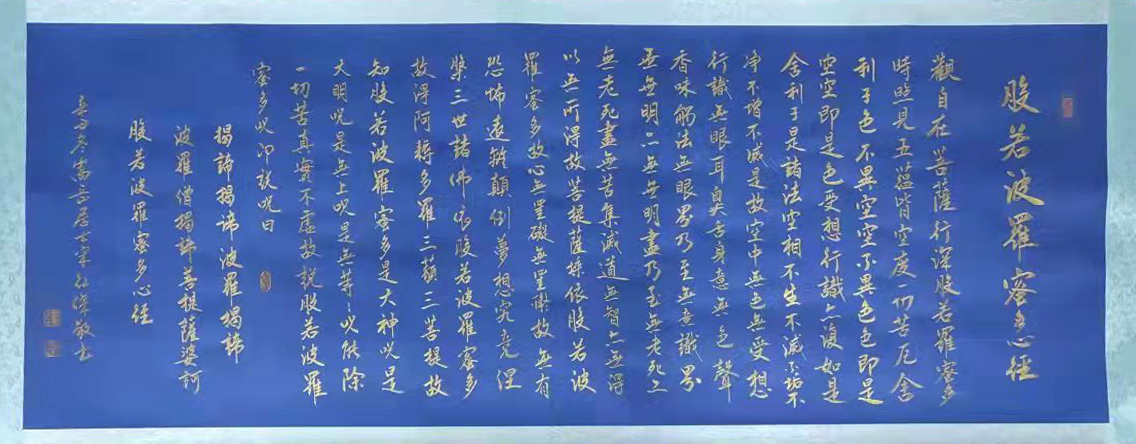 般若波羅蜜多心經
觀自在菩薩行深般若羅蜜多
時照見五蘊皆空度一切苦厄舍
利子色不異空空不異色色即是
空空即是色受想行識亦復如是
舍利子是諸法空相不生不滅不垢不
净不增不減是故空中無色無受想
行識無眼耳鼻舌身意無色聲
香味觸法無眼界乃至無意識界
無無明亦無無明盡乃至無老死亦
無老死盡無苦集滅道無智亦無得
以無所得故菩提薩埵依般若波
羅蜜多故心無罣礙無罣礙故無有
恐怖遠離顛倒夢想究竟涅
槃三世諸佛依般若波羅蜜多
故得阿耨多羅三藐三菩提故
知般若波羅蜜多是大神咒是
大明咒是無上咒是無等等咒能除
一切苦真實不虛故說般若波羅
蜜多咒即說咒曰
揭諦揭諦波羅揭諦
波羅僧揭諦菩提薩婆訶
般若波羅蜜多心經
冬嵩岳居士敬书